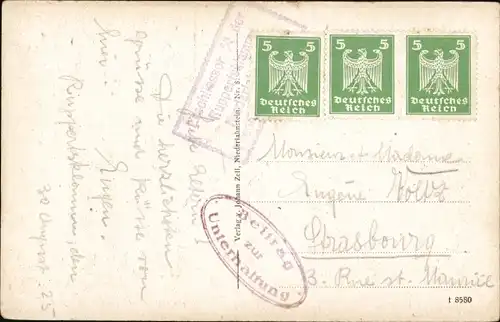 Liebe Eltern!
Die herzlichsten
Grüsse und Küsse von
hier.
Eugen.
Ruppertsklamm, den
30 August. 25
Verlag v. Johann Zell, Niederlahnstein
Beitrag
zur
Unterhaltung
5 5
Deutsches
Reich
5 5
Deutsches
Reich
5 5
Deutsches
Reich
Monsieur et Madame
Eugène Voltz
Strasbourg
3. Rue st. Maurice
t 8580